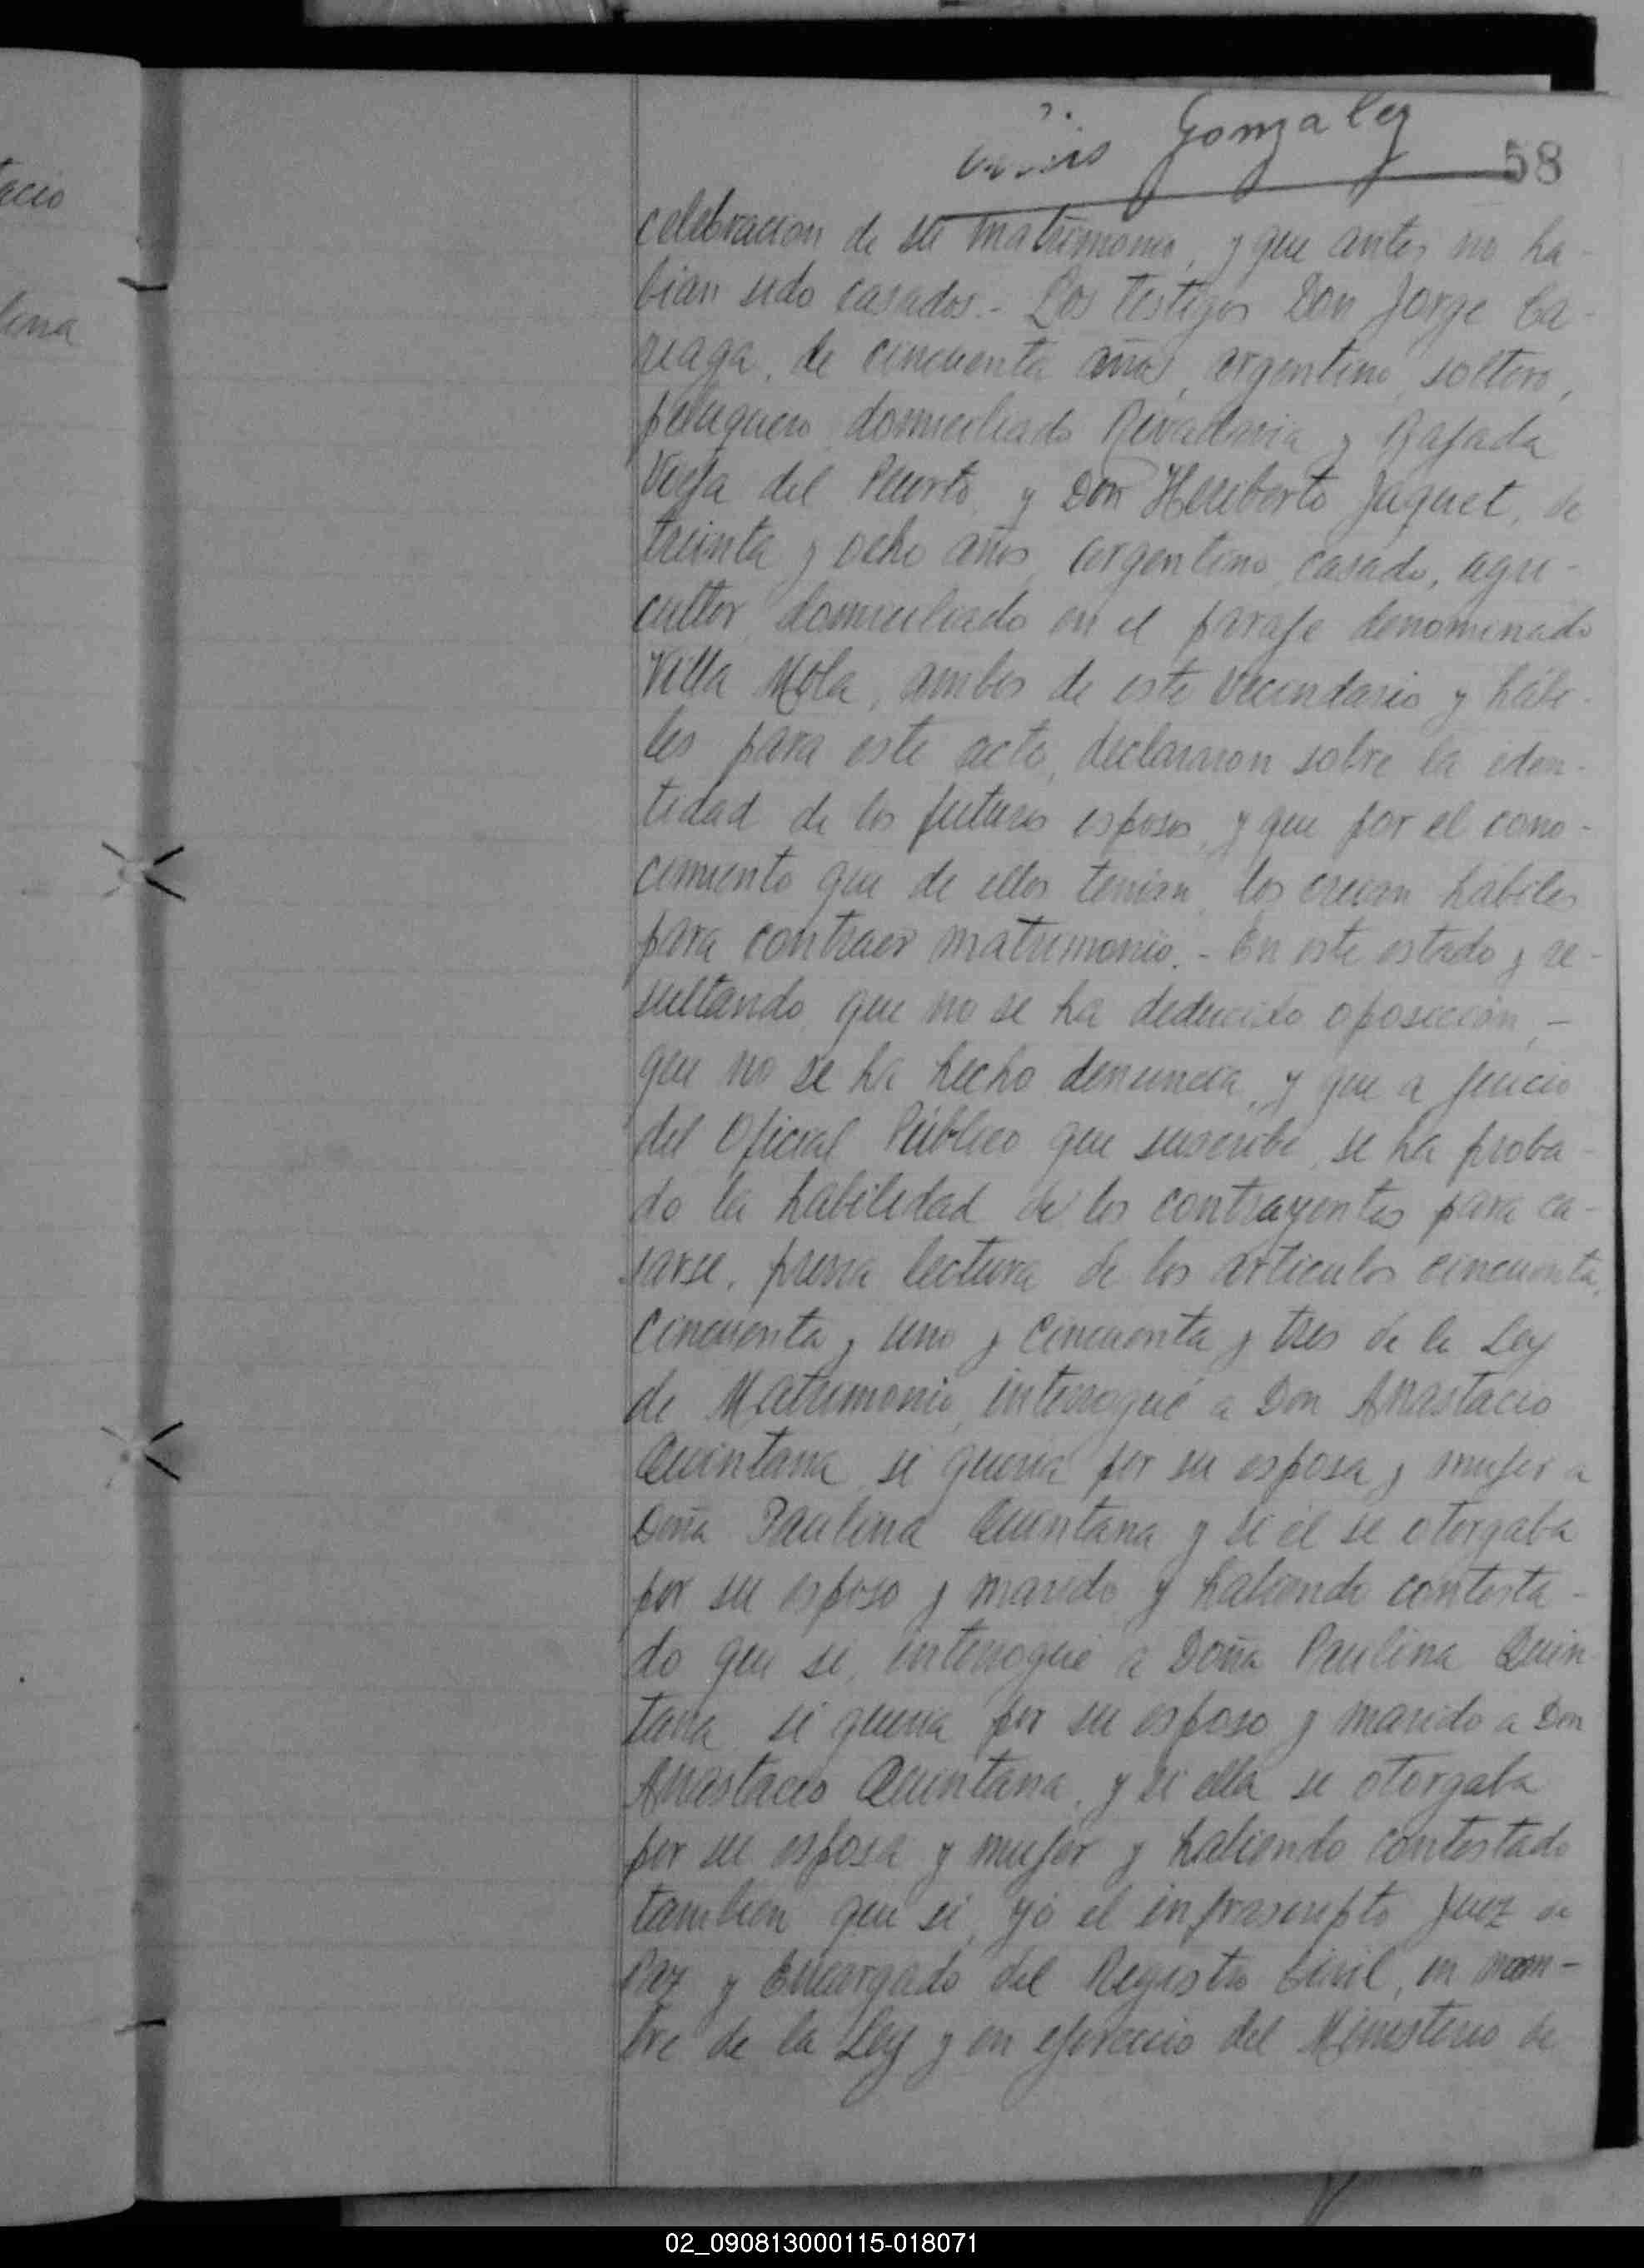 acio
lina
Gonzalez
58
celebracion de su matrimonio, y que antes no ha-
bian sido casados.- Los testigos Don Jorge Ca-
reaga, de cincuenta años, argentino, soltero,
peluquero, domiciliado Rivadavia y Bajada
Vieja del Puerto, y Don Heriberto Jaquet, de
treinta y ocho años, argentino, casado, agri-
cultor, domiciliado en el paraje denominado
Villa Mola, ambos de este vecindario y hábi-
les para este acto, declararon sobre la iden-
tidad de los futuros esposos, y que por el cono-
cimiento que de ellos tenian, los creian habiles
para contraer matrimonio.- En este estado y re-
sultando, que no se ha deducido oposicion, -
que no se ha hecho denuncia, y que a juicio
del Oficial Público que suscribe, se ha proba-
do la habilidad de los contrayentes para ca-
sarse, previa lectura de los articulos cincuenta,
cincuenta y uno y cincuenta y tres de la Ley
de Matrimonio, interrogué a Don Anastacio
Quintana si queria por su esposa y mujer a
Doña Paulina Quintana y si él se otorgaba
por su esposo y marido y habiendo contesta-
do que si, interrogué a Doña Paulina Quin-
tana si queria por su esposo y marido a Don
Anastacio Quintana, y si ella se otorgaba
por su esposa y mujer y habiendo contestado
tambien que si, yó el infrascripto Juez de
Paz y Encargado del Registro Civil, en nom-
bre de la Ley y en ejercicio del Ministerio de
02_090813000115-018071